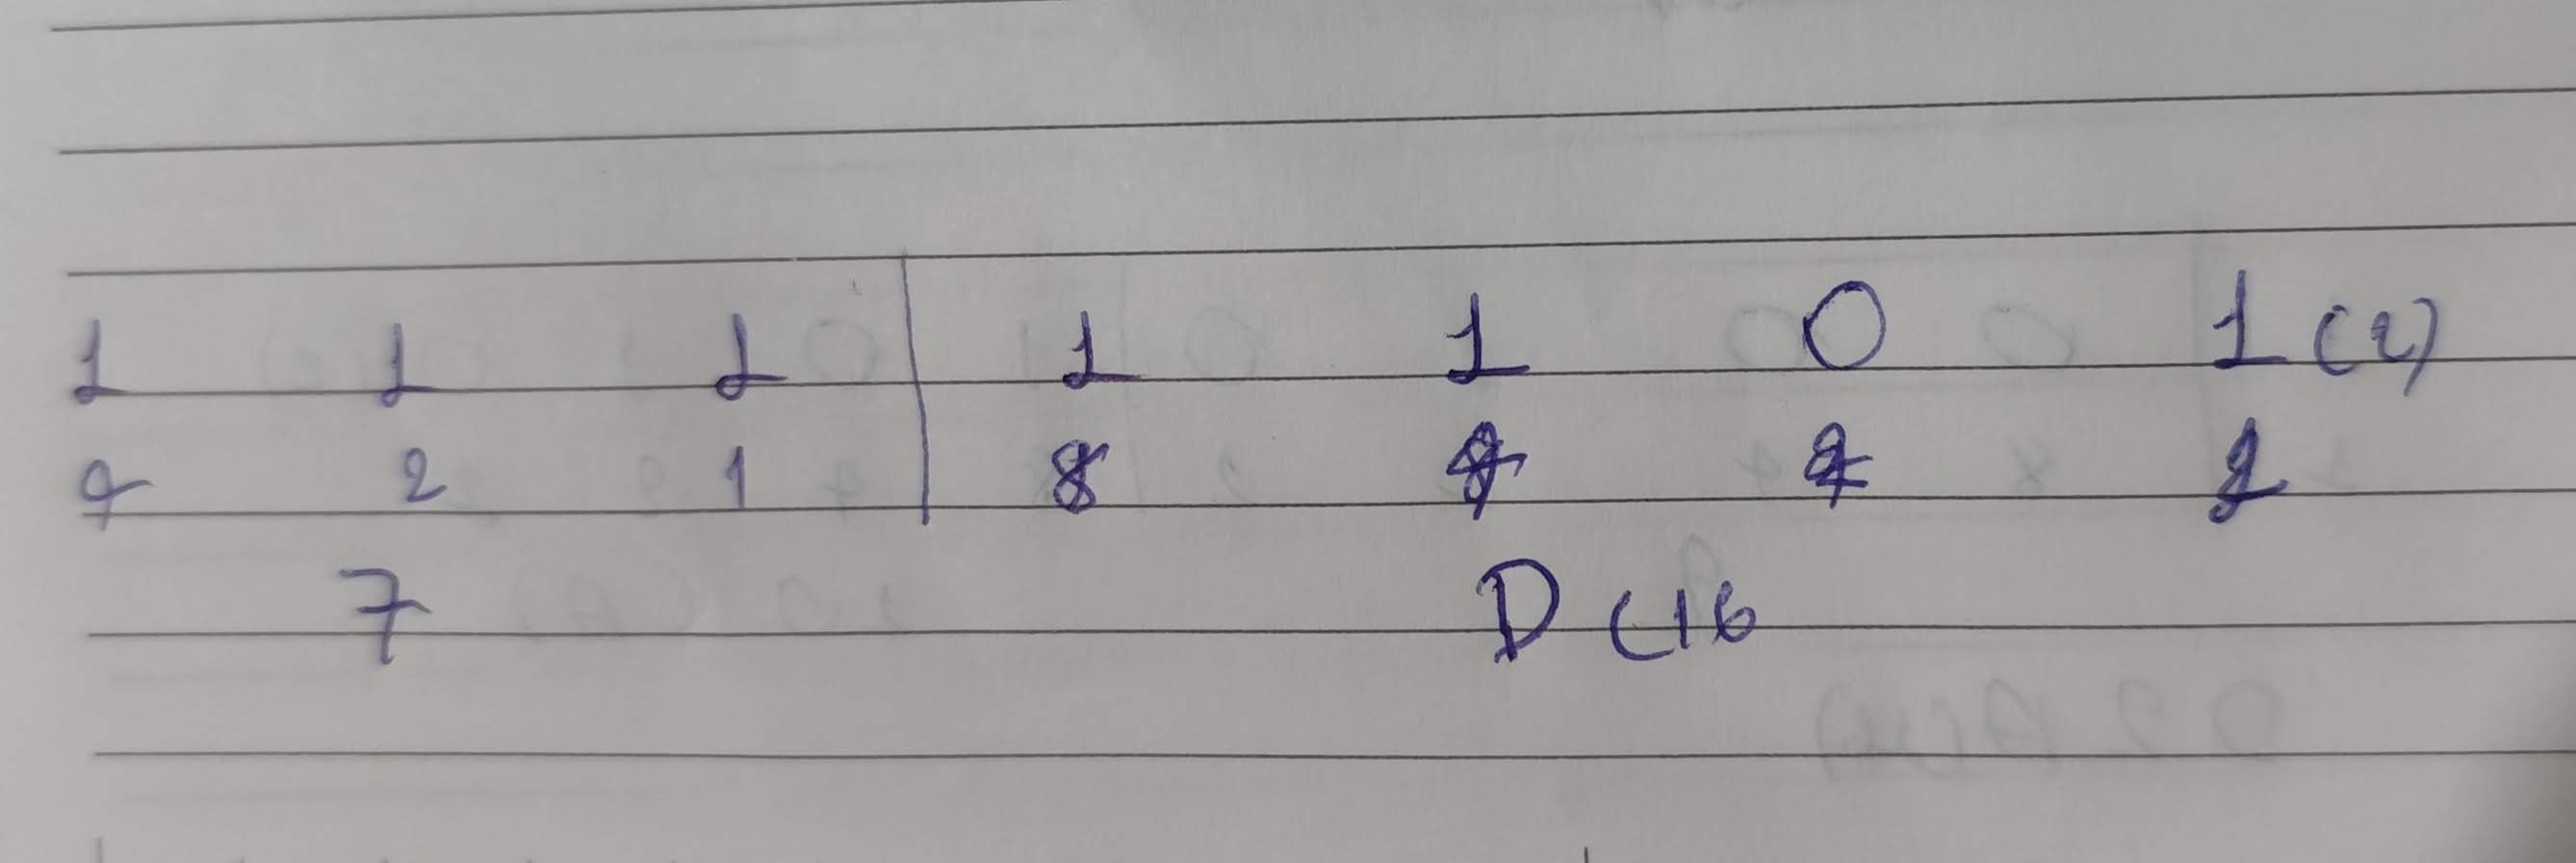 1 1 1 | 1 1 0 1 (2)
4 2 1 | 8 4 2 1
7 D (16